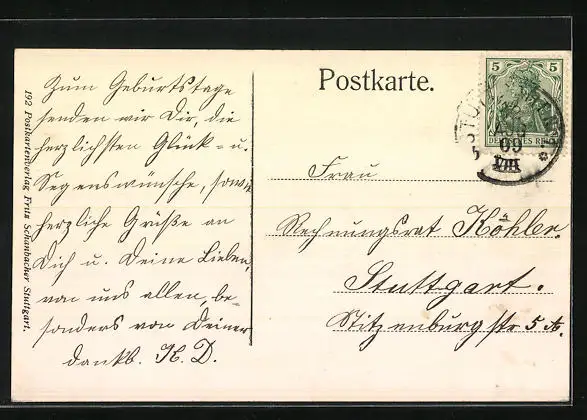 192 Postkartenverlag Fritz Schanbacher Stuttgart.
Zum Geburtstage
senden wir Dir, die
herzlichsten Glück- u.
Segenswünsche, sowie
herzliche Grüße an
Dich u. Deine Lieben,
von uns allen, be-
sonders von Deiner
dankb. K. D.
Postkarte.
5 5
DEUTSCHES REICH
AUG
09
Frau
Rechnungsrat Köhler.
Stuttgart.
Stitzenburgstr 5 A.